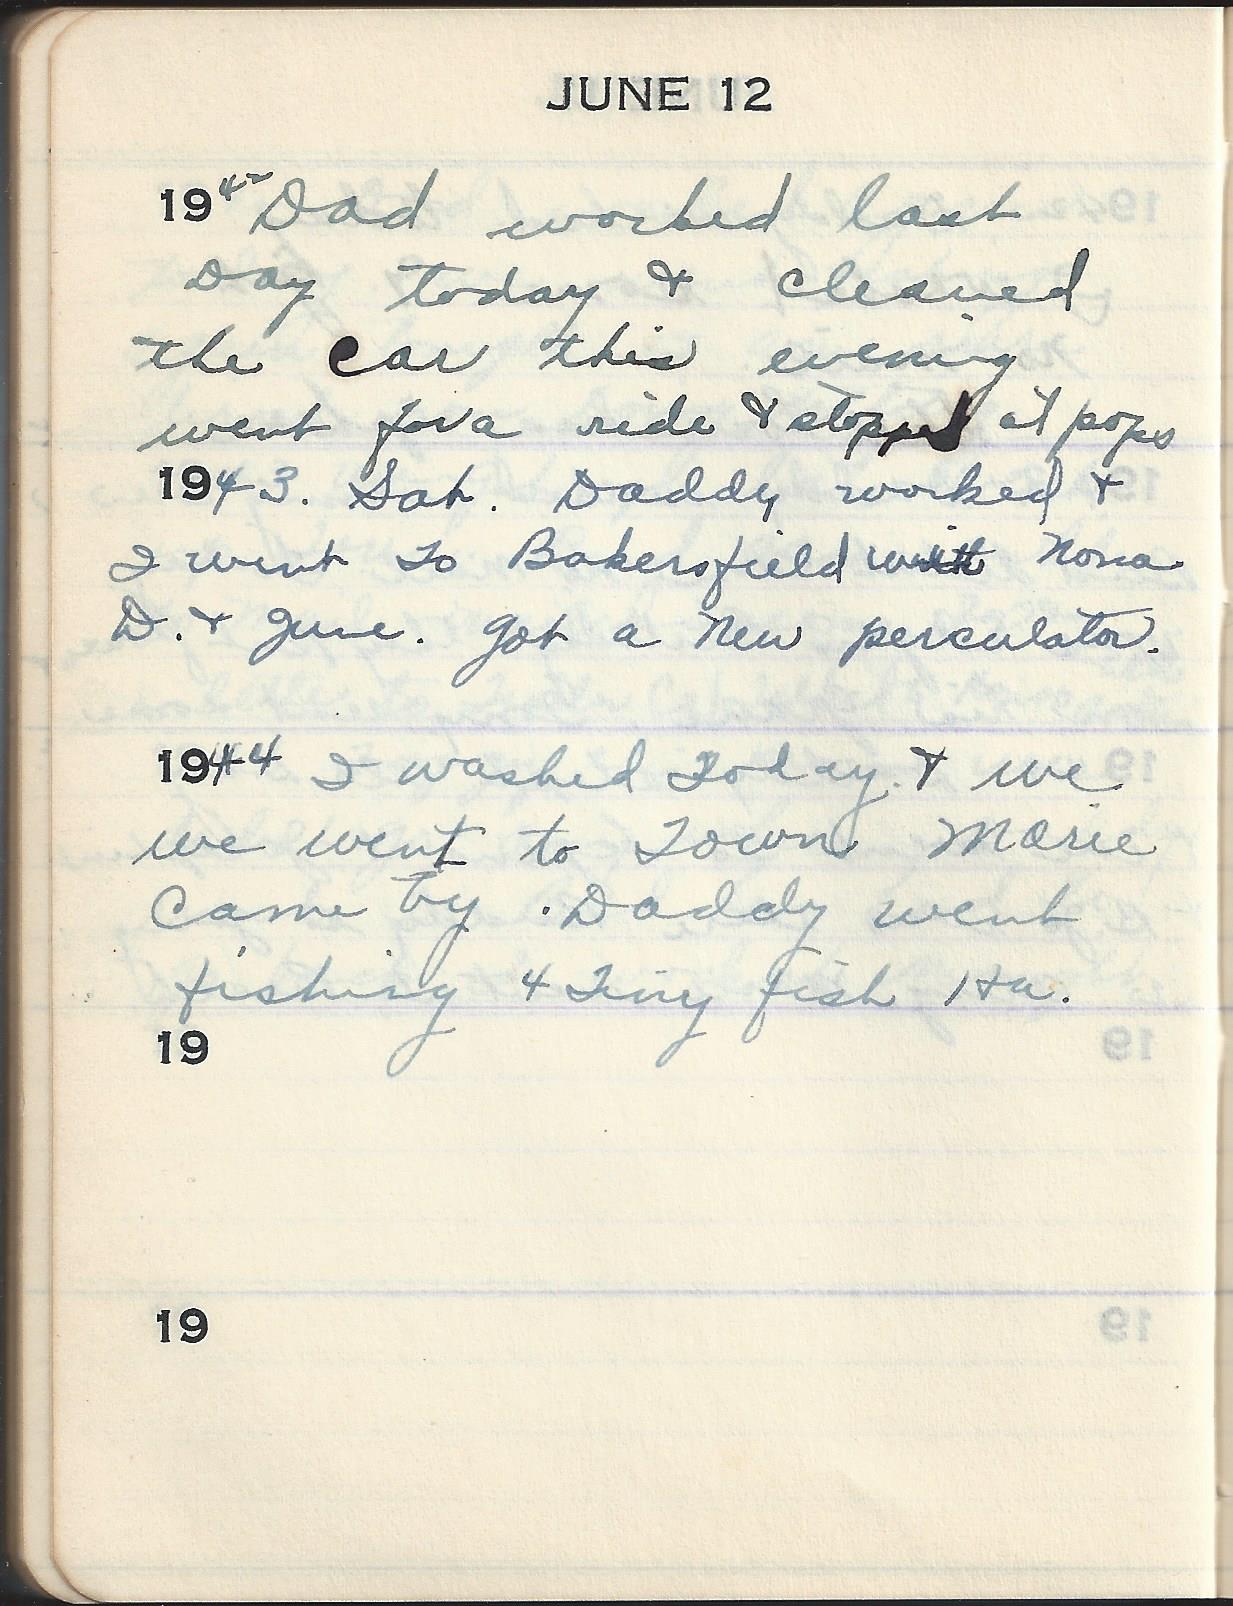 JUNE 12
1942 Dad worked last
Day today & cleaned
the car this evening
went for a ride & stopped at pops
1943. Sat. Daddy worked &
I went to Bakersfield with Nona
D. & June. got a new perculator.
1944 I washed today. & we
we went to Town Marie
came by. Daddy went
fishing 4 Tiny fish Ha.
19
19